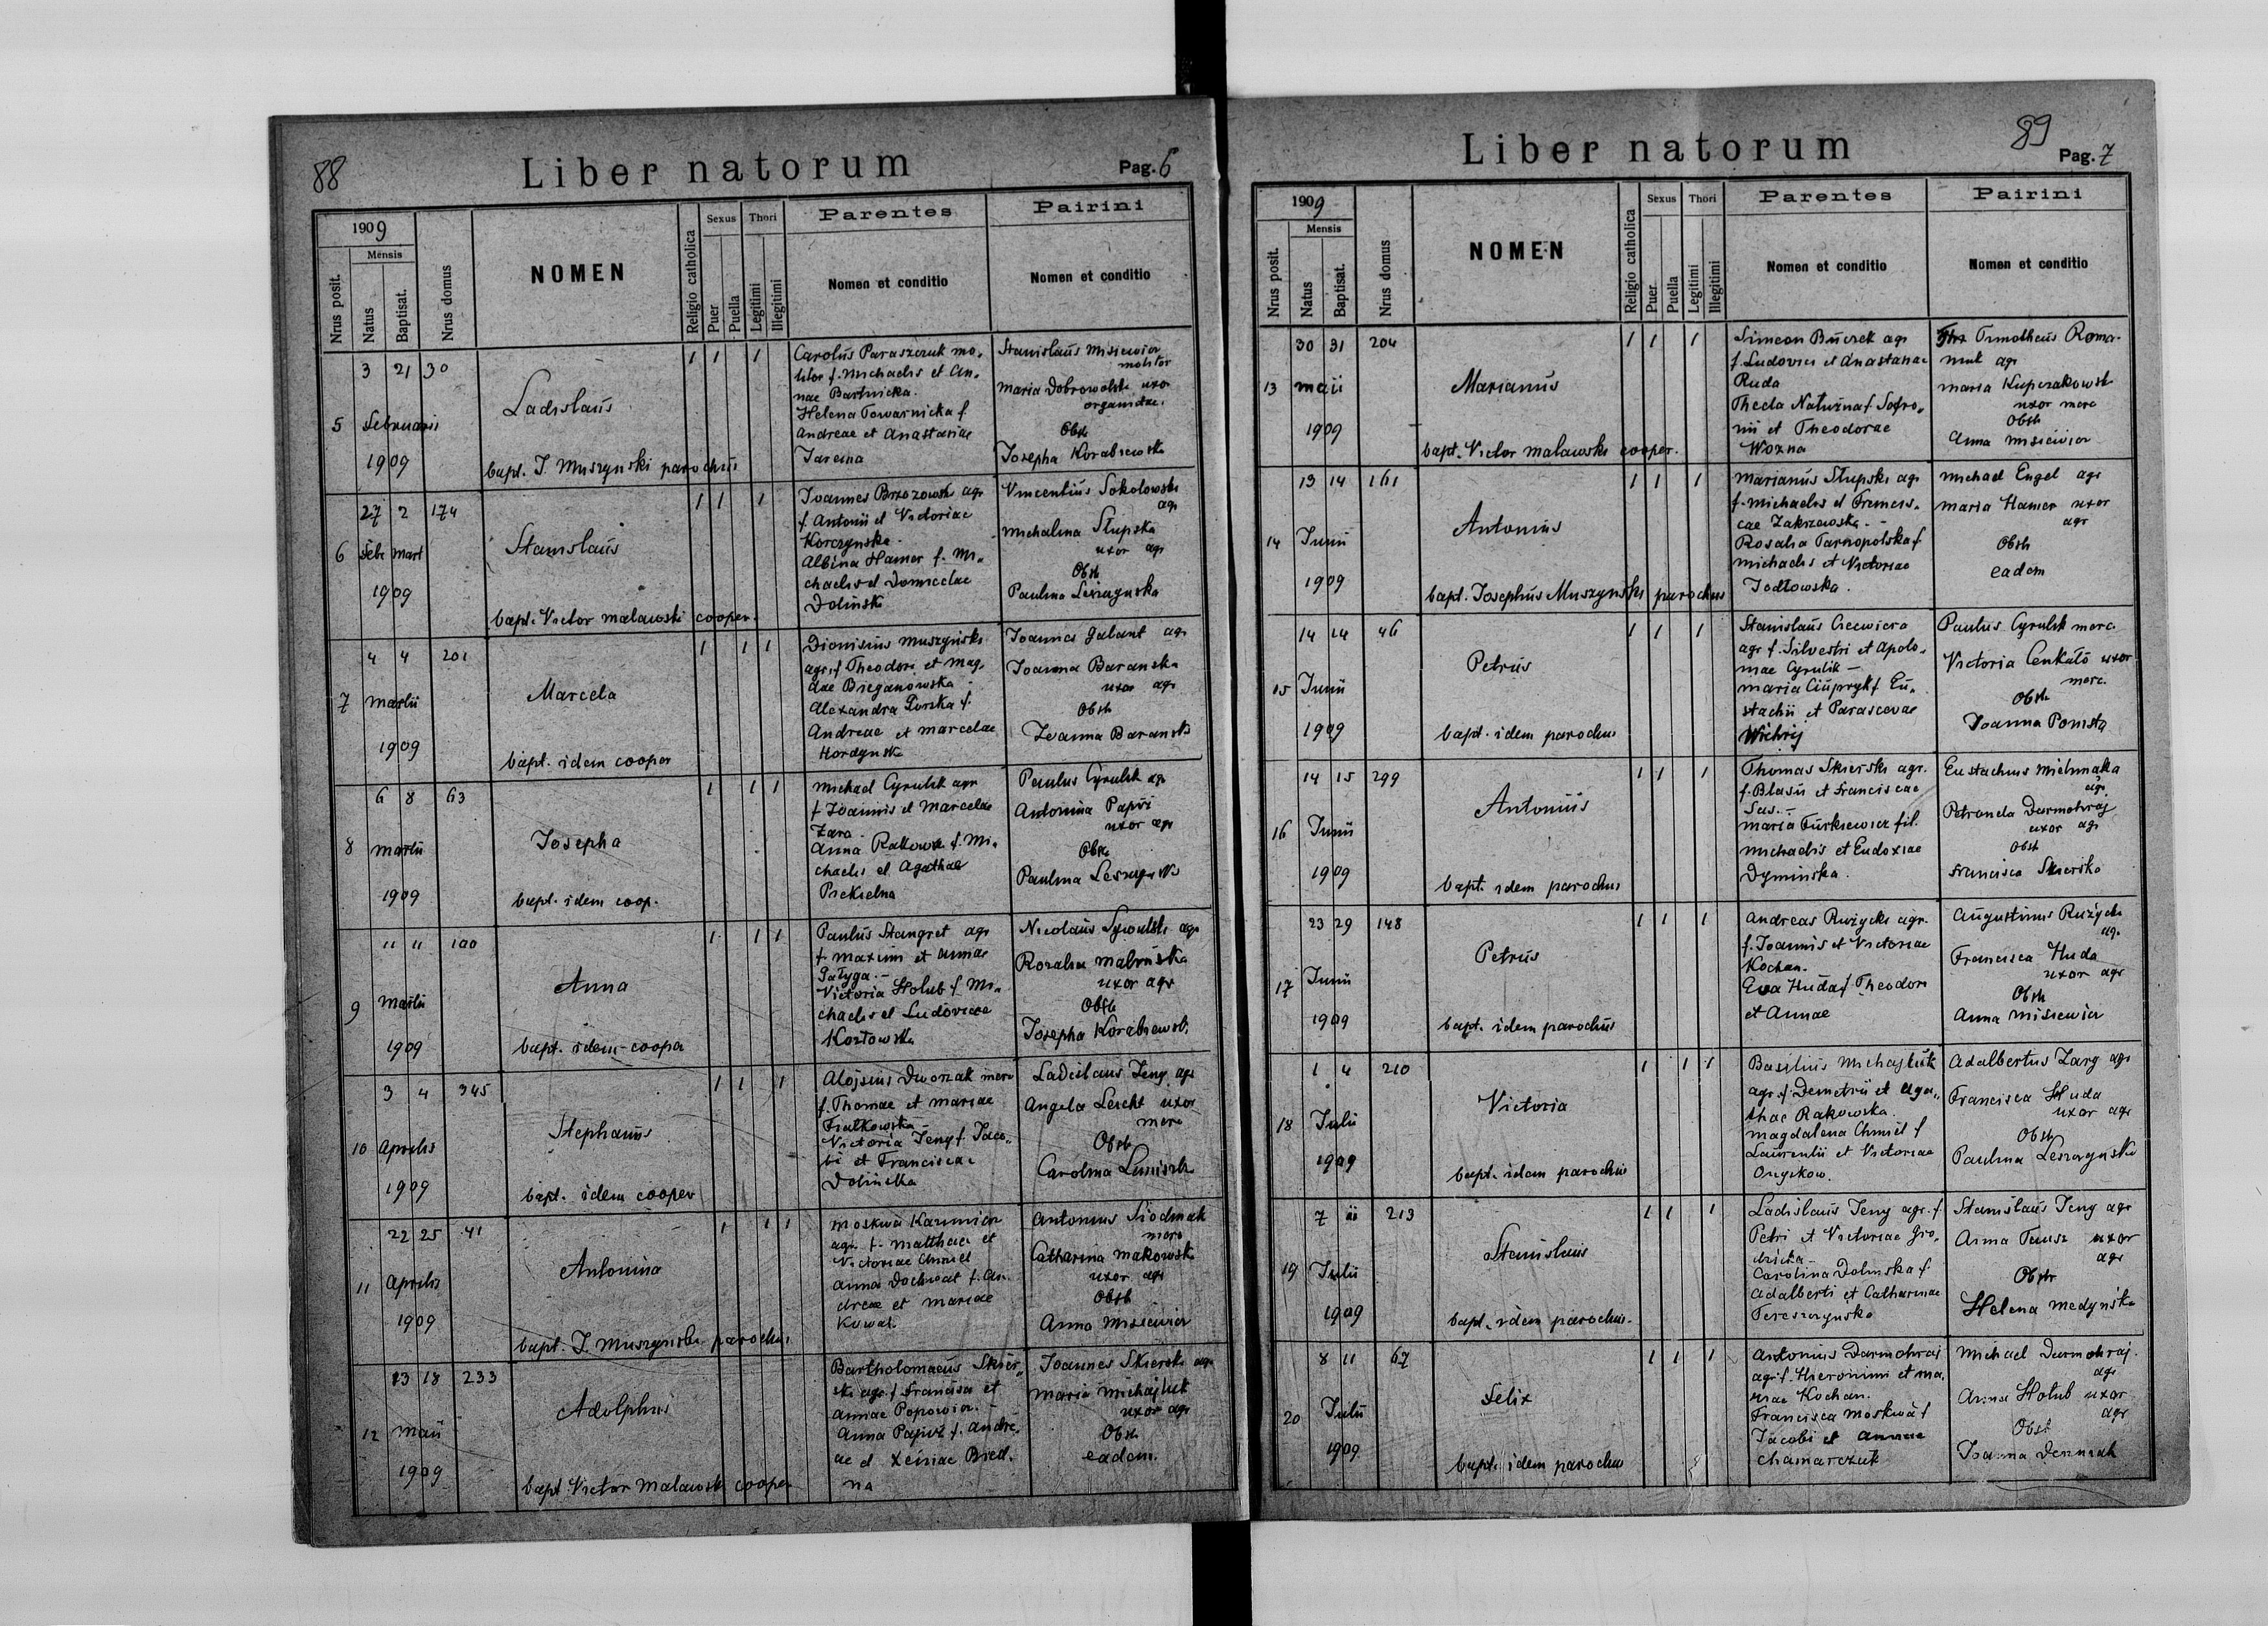 88
Liber natorum
Pag. 6
1909
Mensis
Nrus posit.
Natus
Baptisat.
Nrus domus
NOMEN
Religio catholica
Sexus
Puer
Puella
Thori
Legitimi
Illegitimi
Parentes
Nomen et conditio
Pairini
Nomen et conditio
5
3 21 30
Februarii
1909
Ladislaus
bapt. J. Muszynski parochus
1 1 1
Carolus Paraszczuk mo-
litor f. Michaelis et An-
nae Bartnicka.
Helena Towarnicka f.
Andreae et Anastasiae
Jarema
Stanislaus Misiewicz
molitor
Maria Dobrowolski uxor
organistae.
Obst.
Josepha Korabiewska
6
27 2 174
Febr Mart
1909
Stanislaus
bapt. Victor Malawski cooper.
1 1 1
Joannes Brzozowski agr
f. Antonii et Victoriae
Korczynska.
Albina Hamer f. Mi-
chaelis et Domicelae
Dolinska
Vincentius Sokolowski
agr
Michalina Slupska
uxor agr
Obst.
Paulina Leszczynska
7
4 4 201
Martii
1909
Marcela
bapt. idem cooper
1 1 1
Dionisius Muszynski
agr. f. Theodori et Mag-
dae Bieganowska -
Alexandra Gorska f.
Andreae et Marcelae
Hordynska
Joannes Galant agr
Joanna Baranska
uxor agr
Obst
Joanna Baranska
8
6 8 63
Martii
1909
Josepha
bapt. idem coop.
1 1 1
Michael Cyrulik agr
f. Joannis et Marcelae
Zara.
Anna Rakowska f. Mi-
chaelis et Agathae
Piekielna
Paulus Cyrulik agr
Antonina Papiz
uxor agr
Obst.
Paulina Leszczynska
9
11 11 100
Martii
1909
Anna
bapt. idem cooper
1 1 1
Paulus Stangret agr
f. Maximi et Annae
Galyga.-
Victoria Holub f. Mi-
chaelis et Ludovicae
Kozlowska
Nicolaus Sywulski agr
Rozalia Malinska
uxor agr
Obst.
Josepha Korabiewska
10
3 4 345
Aprilis
1909
Stephanus
bapt. idem cooper
1 1 1
Alojsius Dworzak merc
f. Thomae et Mariae
Fialkowska -
Victoria Jeny f. Jaco-
bi et Franciscae
Dolinska
Ladislaus Jeny agr
Angela Leicht uxor
merc
Obst
Carolina
11
22 25 41
Aprilis
1909
Antonina
bapt. J. Muszynski parochus
1 1 1
Moskwa Kazimier
agr. f. Matthaei et
Victoriae Chmiel
Anna Dochwat f. An-
dreae et Mariae
Kowal.
Antonius Siodmak
merc
Catharina Makowska
uxor agr
Obst
Anna Misiewicz
12
13 18 233
Maii
1909
Adolphus
bapt Victor Malawski cooper
Bartholomaeus Skier-
ski agr. f. Francisci et
Annae Popowicz. -
Anna Papiz f. Andre-
ae et Xeniae Bied-
na
Joannes Skierski agr
Maria Michajluk
uxor agr
Obst.
eadem.
89
Liber natorum
Pag. 7
1909
Mensis
Nrus posit.
Natus
Baptisat.
Nrus domus
NOMEN
Religio catholica
Sexus
Puer
Puella
Thori
Legitimi
Illegitimi
Parentes
Nomen et conditio
Pairini
Nomen et conditio
13
30 31 204
Maii
1909
Marianus
bapt. Victor Malawski cooper.
1 1 1
Simeon Burek agr
f. Ludovici et Anastasiae
Ruda
Thecla Naturna f. Sofro-
nii et Theodorae
Wozna
Timotheus Roma-
niuk agr
Maria Kupczakowska
uxor merc
Obst
Anna Misiewicz
14
13 14 161
Junii
1909
Antonius
bapt. Josephus Muszynski parochus
1 1 1
Marianus Slupski agr
f. Michaelis et Francis-
cae Zakrzewska. -
Rosalia Tarnopolska f.
Michaelis et Victoriae
Jodlowska.
Michael Engel agr
Maria Hamer uxor
agr
Obst
eadem
15
14 14 46
Junii
1909
Petrus
bapt. idem parochus
1 1 1
Stanislaus Ciecwierz
agr f. Silvestri et Apolo-
niae Cyrulik -
Maria Ciupryk f. Eu-
stachii et Parascevae
Wichrij
Paulus Cyrulik merc.
Victoria Cenkalo uxor
merc.
Obst.
Joanna Pomsta
16
14 15 299
Junii
1909
Antonius
bapt. idem parochus
1 1 1
Thomas Skierski agr.
f. Blasii et Franciscae
Sus. -
Maria Turkiewicz fil.
Michaelis et Eudoxiae
Dyminska.
Eustachius Michnaka
agr.
Petronela Darmohraj
uxor agr
Obst
Francisca Skierska
17
23 29 148
Junii
1909
Petrus
bapt. idem parochus
1 1 1
Andreas Ruzycki agr.
f. Joannis et Victoriae
Kochan.
Eva Huda f. Theodori
et Annae
Augustinus Ruzycki
agr.
Francisca Huda
uxor agr
Obst
Anna Misiewicz
18
1 4 210
Julii
1909
Victoria
bapt. idem parochus
1 1 1
Basilius Michajluk
agr. f. Demetrii et Aga-
thae Rakowska.
Magdalena Chmiel f
Laurentii et Victoriae
Onyskow.
Adalbertus Zarg agr
Francisca Huda
uxor agr
Obst
Paulina Leszczynska
19
7 11 213
Julii
1909
Stanislaus
bapt. idem parochus.
1 1 1
Ladislaus Jeny agr. f.
Petri et Victoriae Gro-
dzicka -
Carolina Dolinska f.
Adalberti et Catharinae
Tereszczynska
Stanislaus Jeny agr
Anna Teusz uxor
agr
Obst
Helena Medynska
20
8 11 67
Julii
1909
Felix
bapt. idem parochus
1 1 1
Antonius Darmohraj
agr. f. Hieronimi et Ma-
riae Kochan.
Francisca Moskwa f
Jacobi et Annae
Chamarczuk
Michael Darmohraj.
agr
Anna Holub uxor
agr
Obst
Joanna